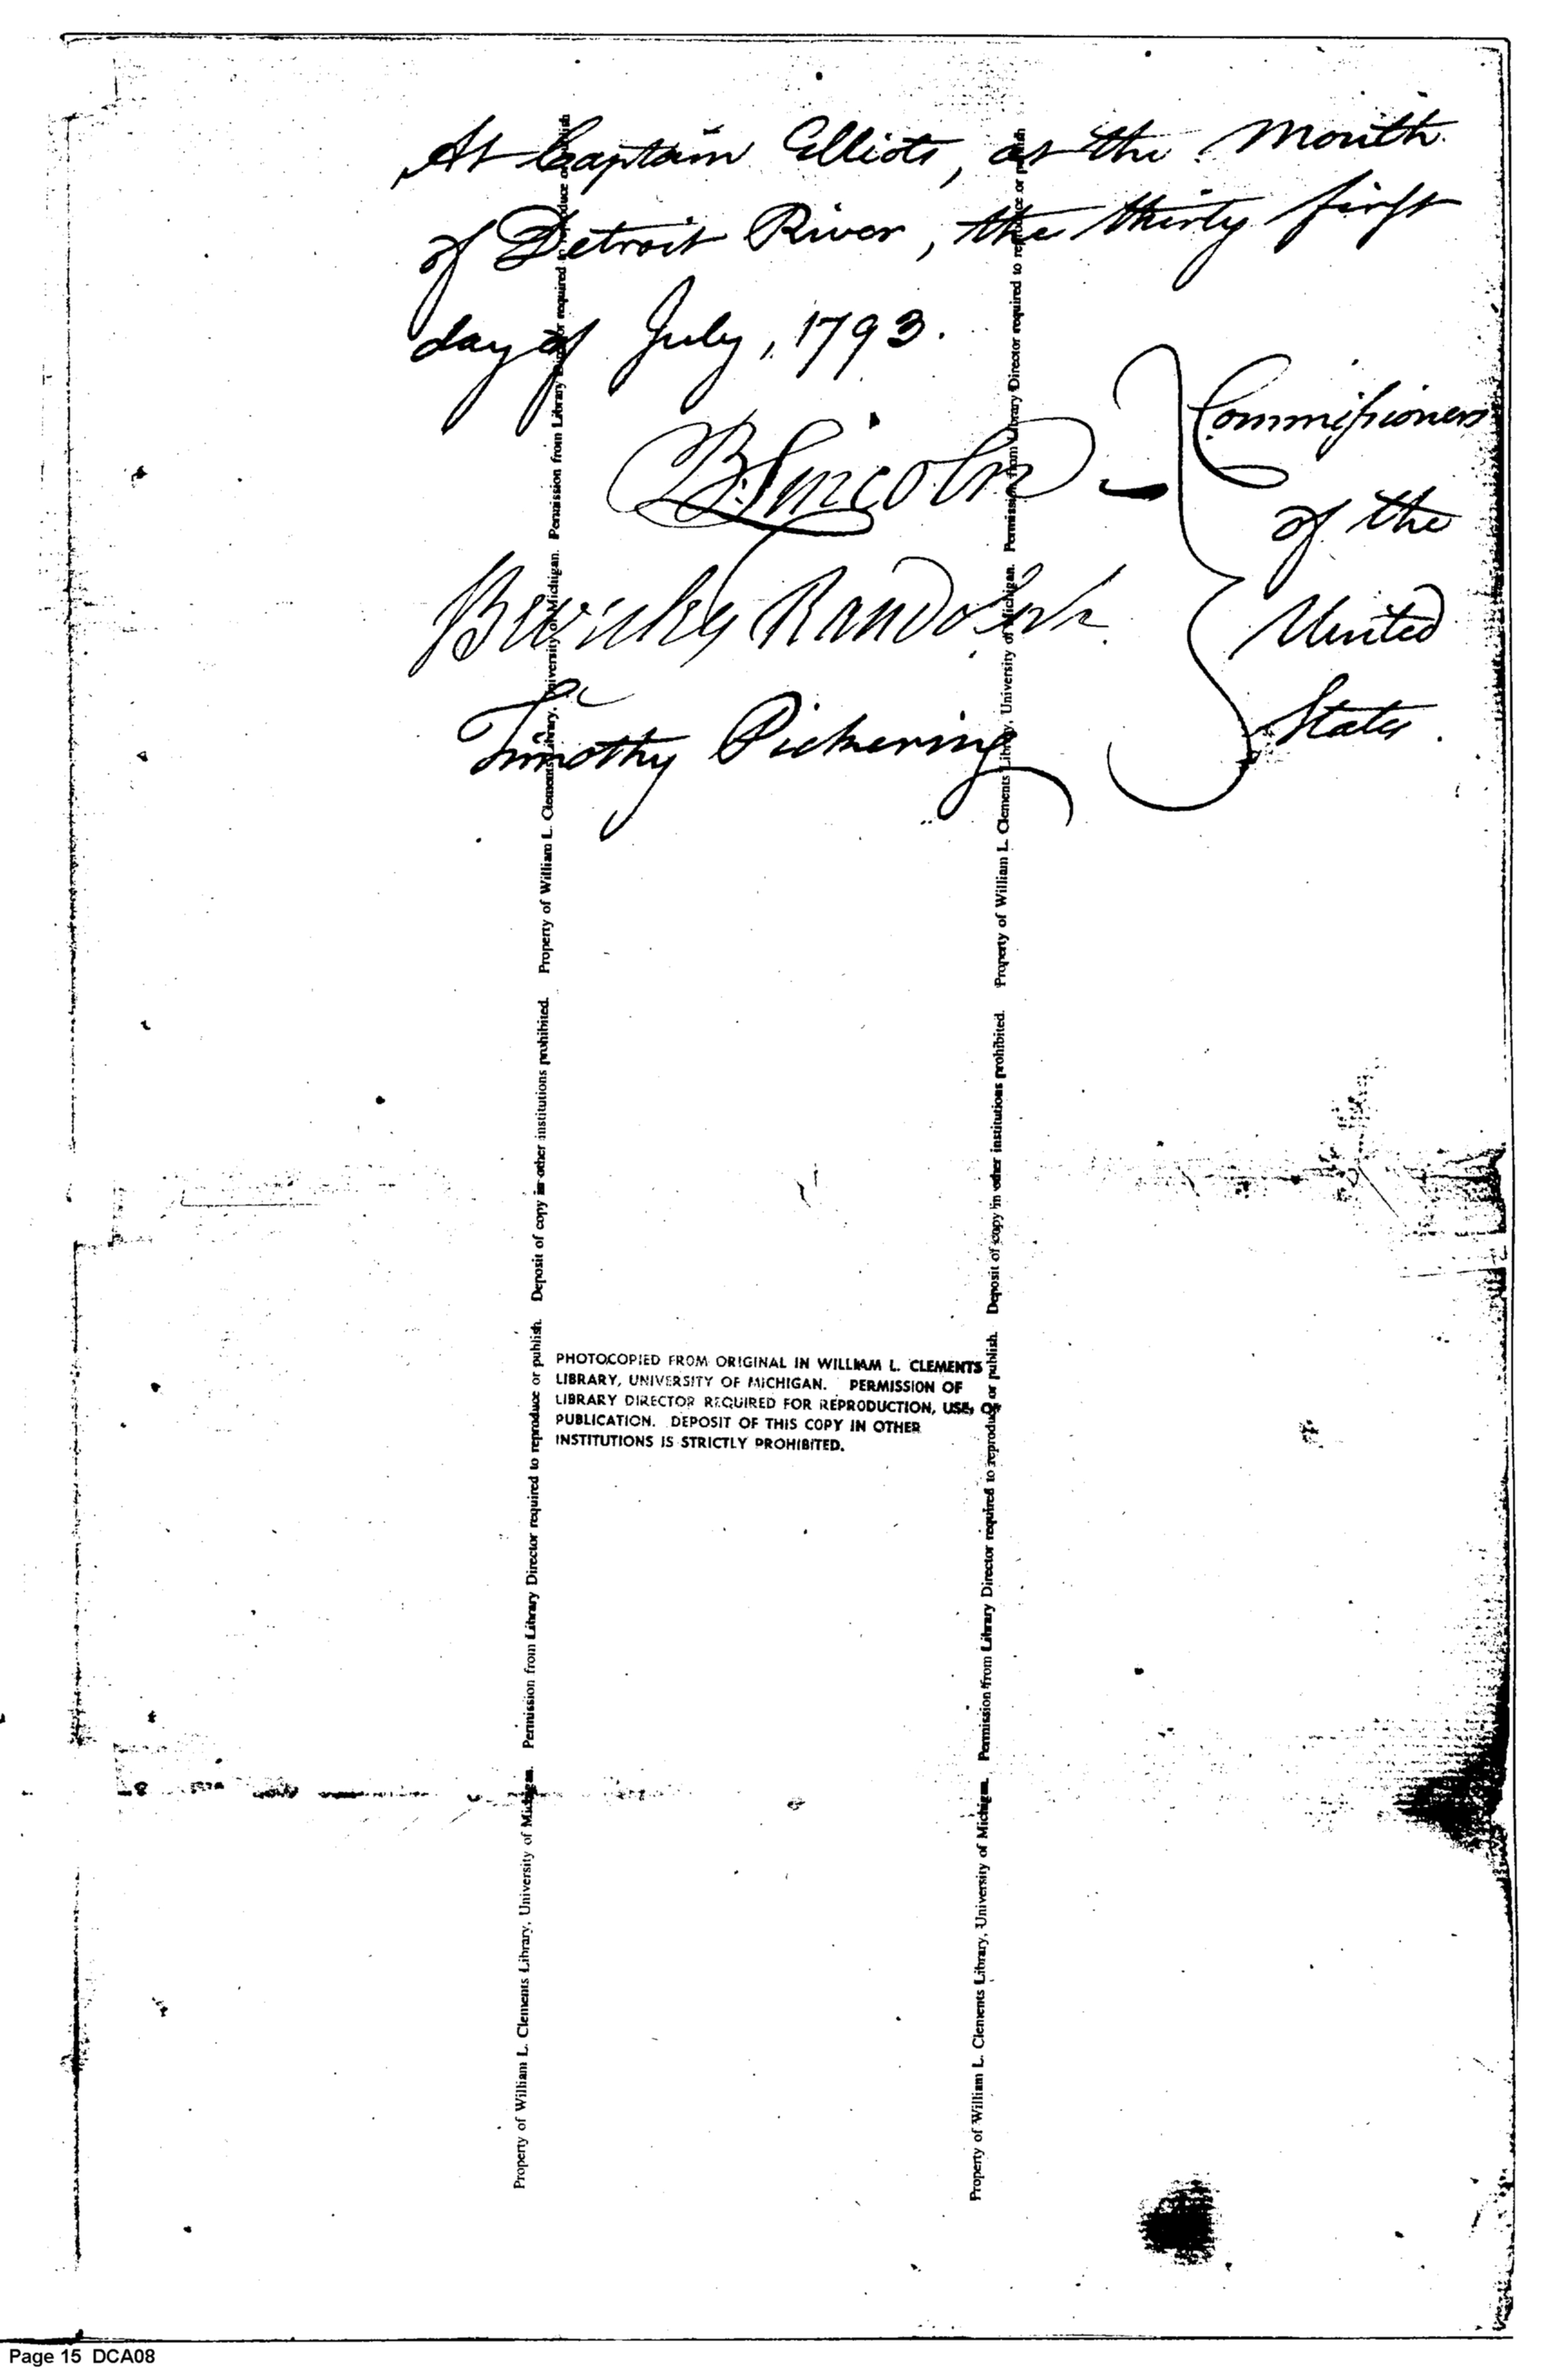 At Captain Elliots, at the Mouth
of Detroit River, the thirty first
day of July, 1793.
B. Lincoln
Beverley Randolph
Timothy Pickering
Commissioners
of the
United
States.
Property of William L. Clements Library, University of Michigan. Permission from Library Director required to reproduce or publish. Deposit of copy in other institutions prohibited. Property of William L. Clements Library, University of Michigan. Permission from Library Director required to reproduce or publish
Property of William L. Clements Library, University of Michigan. Permission from Library Director required to reproduce or publish. Deposit of copy in other institutions prohibited. Property of William L. Clements Library, University of Michigan. Permission from Library Director required to reproduce or publish
PHOTOCOPIED FROM ORIGINAL IN WILLIAM L. CLEMENTS
LIBRARY, UNIVERSITY OF MICHIGAN. PERMISSION OF
LIBRARY DIRECTOR REQUIRED FOR REPRODUCTION, USE, OR
PUBLICATION. DEPOSIT OF THIS COPY IN OTHER
INSTITUTIONS IS STRICTLY PROHIBITED.
Page 15 DCA08